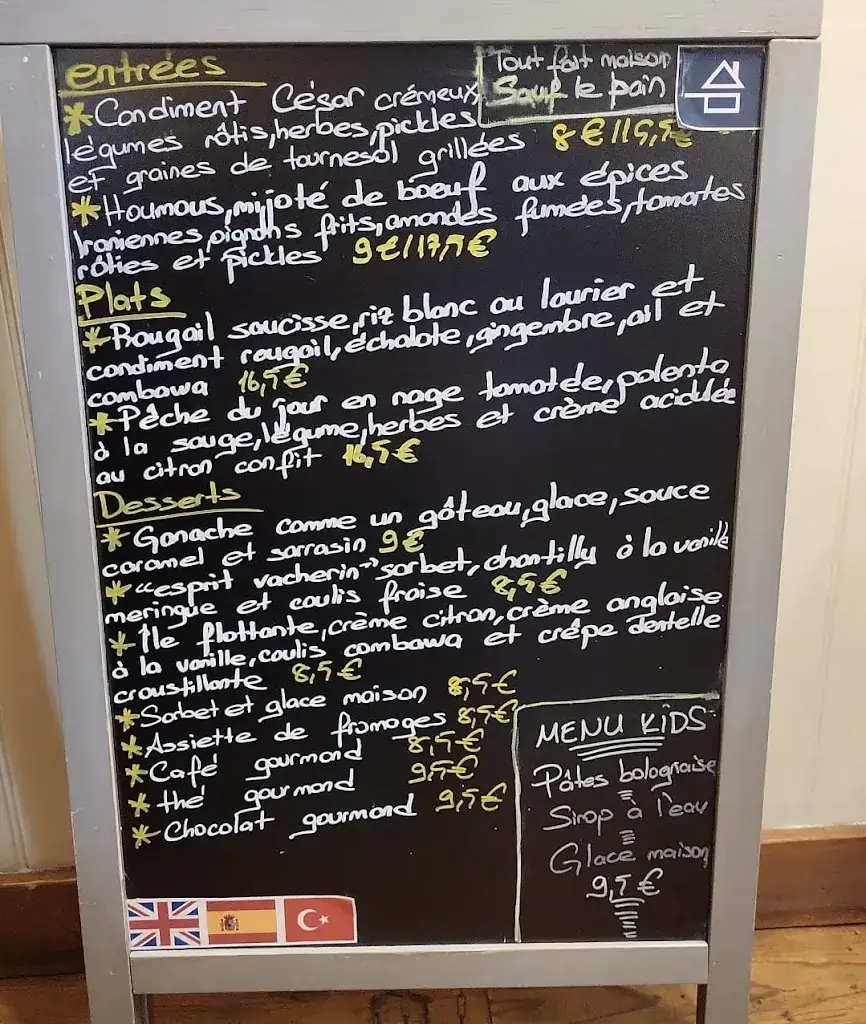 entrées
Tout fait maison
Sauf le pain
*Condiment César crémeux
légumes rôtis, herbes, pickles
et graines de tournesol grillées 8€/15,5€
*Houmous, mijoté de boeuf aux épices
Iraniennes, oignons frits, amandes fumées, tomates
rôties et pickles 9€/17,5€
Plats
*Rougail saucisse, riz blanc au laurier et
condiment rougail, échalote, gingembre, ail et
combawa 16,5€
*Pêche du jour en nage tomatée, polenta
à la sauge, légume, herbes et crème acidulée
au citron confit 16,5€
Desserts
*Ganache comme un gâteau, glace, sauce
caramel et sarrasin 9€
*"esprit vacherin" sorbet, chantilly à la vanille
meringue et coulis fraise 8,5€
*Île flottante, crème citron, crème anglaise
à la vanille, coulis combawa et crêpe dentelle
croustillante 8,5€
*Sorbet et glace maison 8,5€
*Assiette de fromages 8,5€
*Café gourmand 8,5€
*thé gourmand 9,5€
*Chocolat gourmand 9,5€
MENU KIDS
Pâtes bolognaise
Sirop à l'eau
Glace maison
9,5€